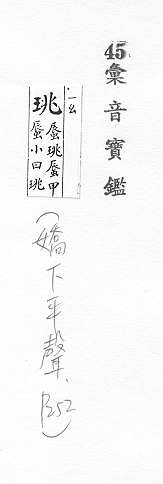 45彙音寶鑑
一ㄠ
珧
蜃珧蜃甲
蜃小曰珧
(嬌下平聲、P252)